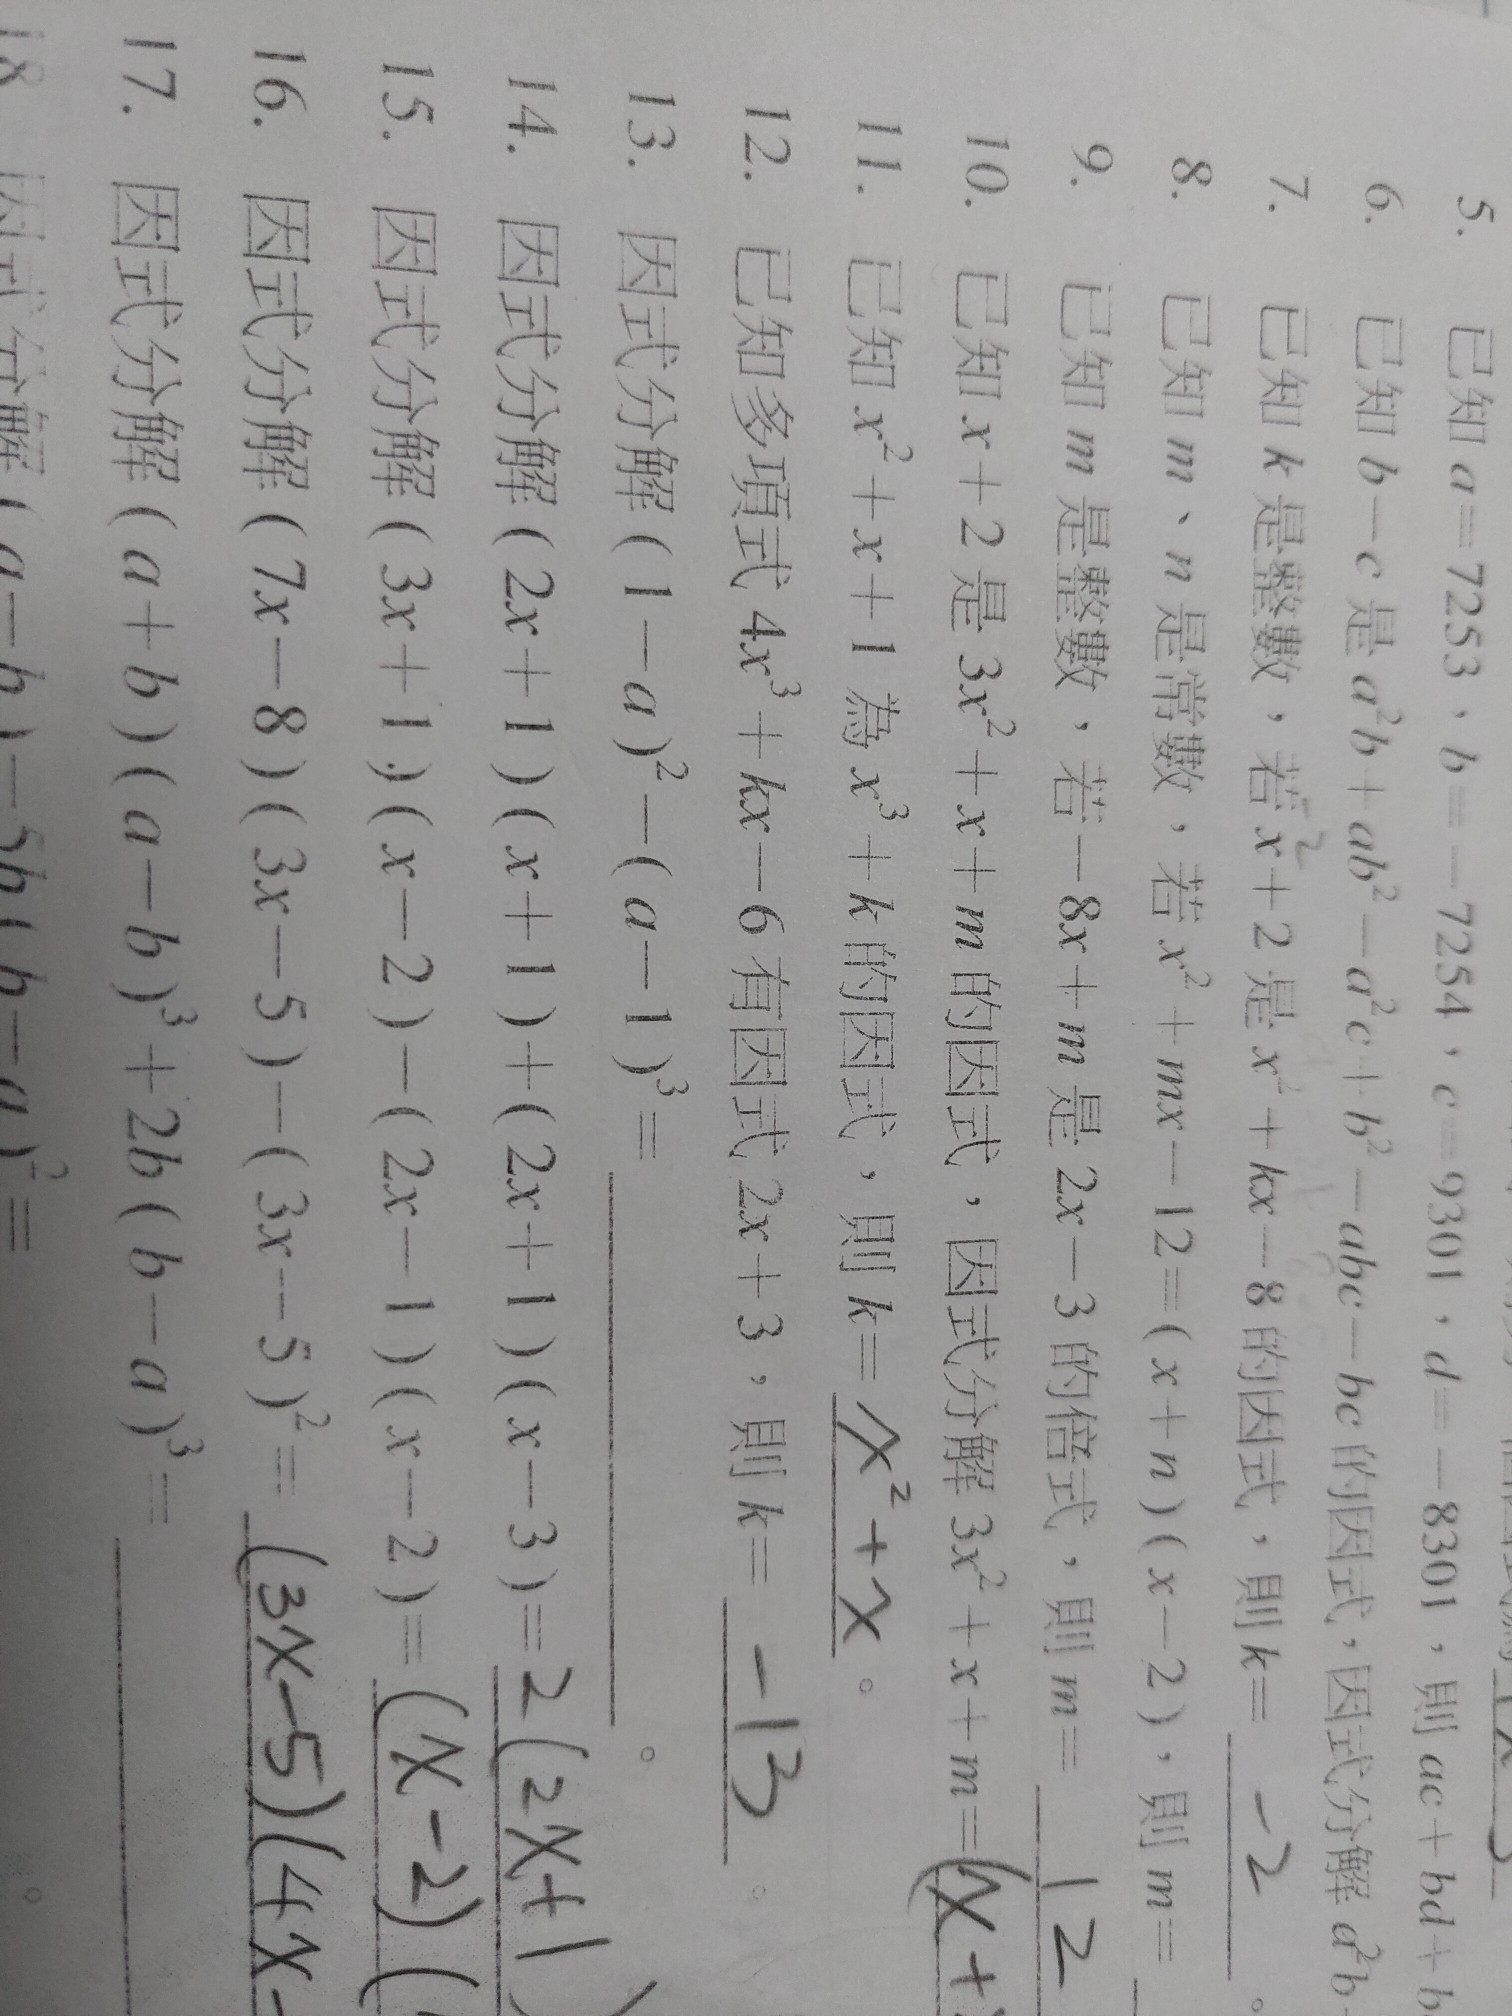 5. 已知 a=7253，b=-7254，c=9301，d=-8301，則 ac+bd+b
6. 已知 b-c 是 a²b+ab²-a²c+b²-abc-bc 的因式，因式分解 a²b
7. 已知 k 是整數，若 x+2 是 x²+kx-8 的因式，則 k= -2 。
8. 已知 m、n 是常數，若 x²+mx-12=(x+n)(x-2)，則 m=
9. 已知 m 是整數，若 -8x+m 是 2x-3 的倍式，則 m= 12
10. 已知 x+2 是 3x²+x+m 的因式，因式分解 3x²+x+m= (x+
11. 已知 x²+x+1 為 x³+k 的因式，則 k= x²+x 。
12. 已知多項式 4x³+kx-6 有因式 2x+3，則 k= -13 。
13. 因式分解 (1-a)²-(a-1)³= 。
14. 因式分解 (2x+1)(x+1)+(2x+1)(x-3)= 2(2x+1)
15. 因式分解 (3x+1)(x-2)-(2x-1)(x-2)= (x-2)(
16. 因式分解 (7x-8)(3x-5)-(3x-5)²= (3x-5)(4x-
17. 因式分解 (a+b)(a-b)³+2b(b-a)³= 。
18. 因式分解 (a-b)-3b(b-a)²=